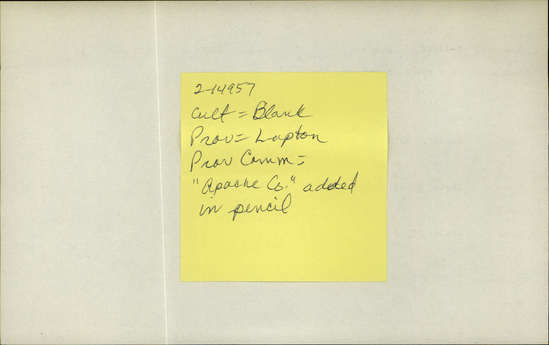 2-14957
Cult = Blank
Prov = Lupton
Prov Comm =
"Apache Co." added
in pencil